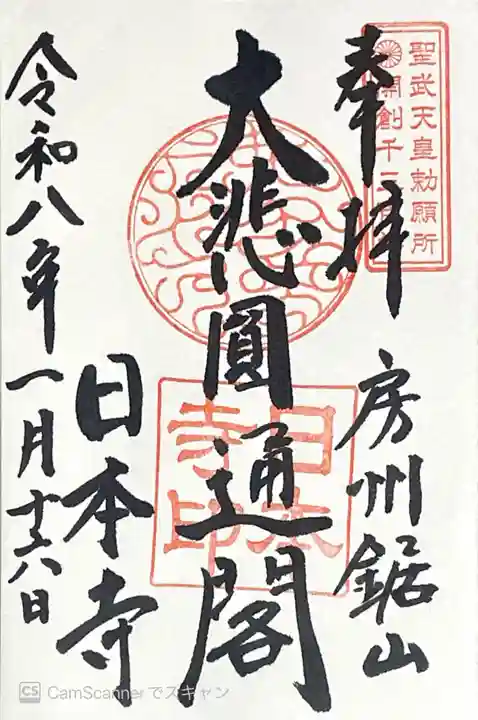 聖武天皇勅願所
開創千三百
奉拝
房州鋸山
大悲圓通閣
日本寺印
日本寺
令和八年一月十六日
CS CamScannerでスキャン